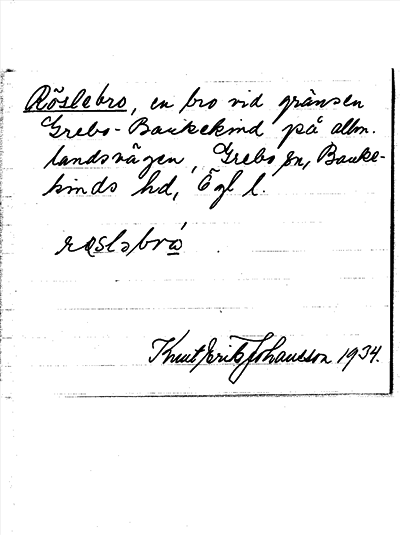 Röslebro, en bro vid gränsen
Grebo-Bankekind på allm.
landsvägen, Grebo sn, Banke-
kinds hd, Ögl l.
Knut Erik Johansson 1934.